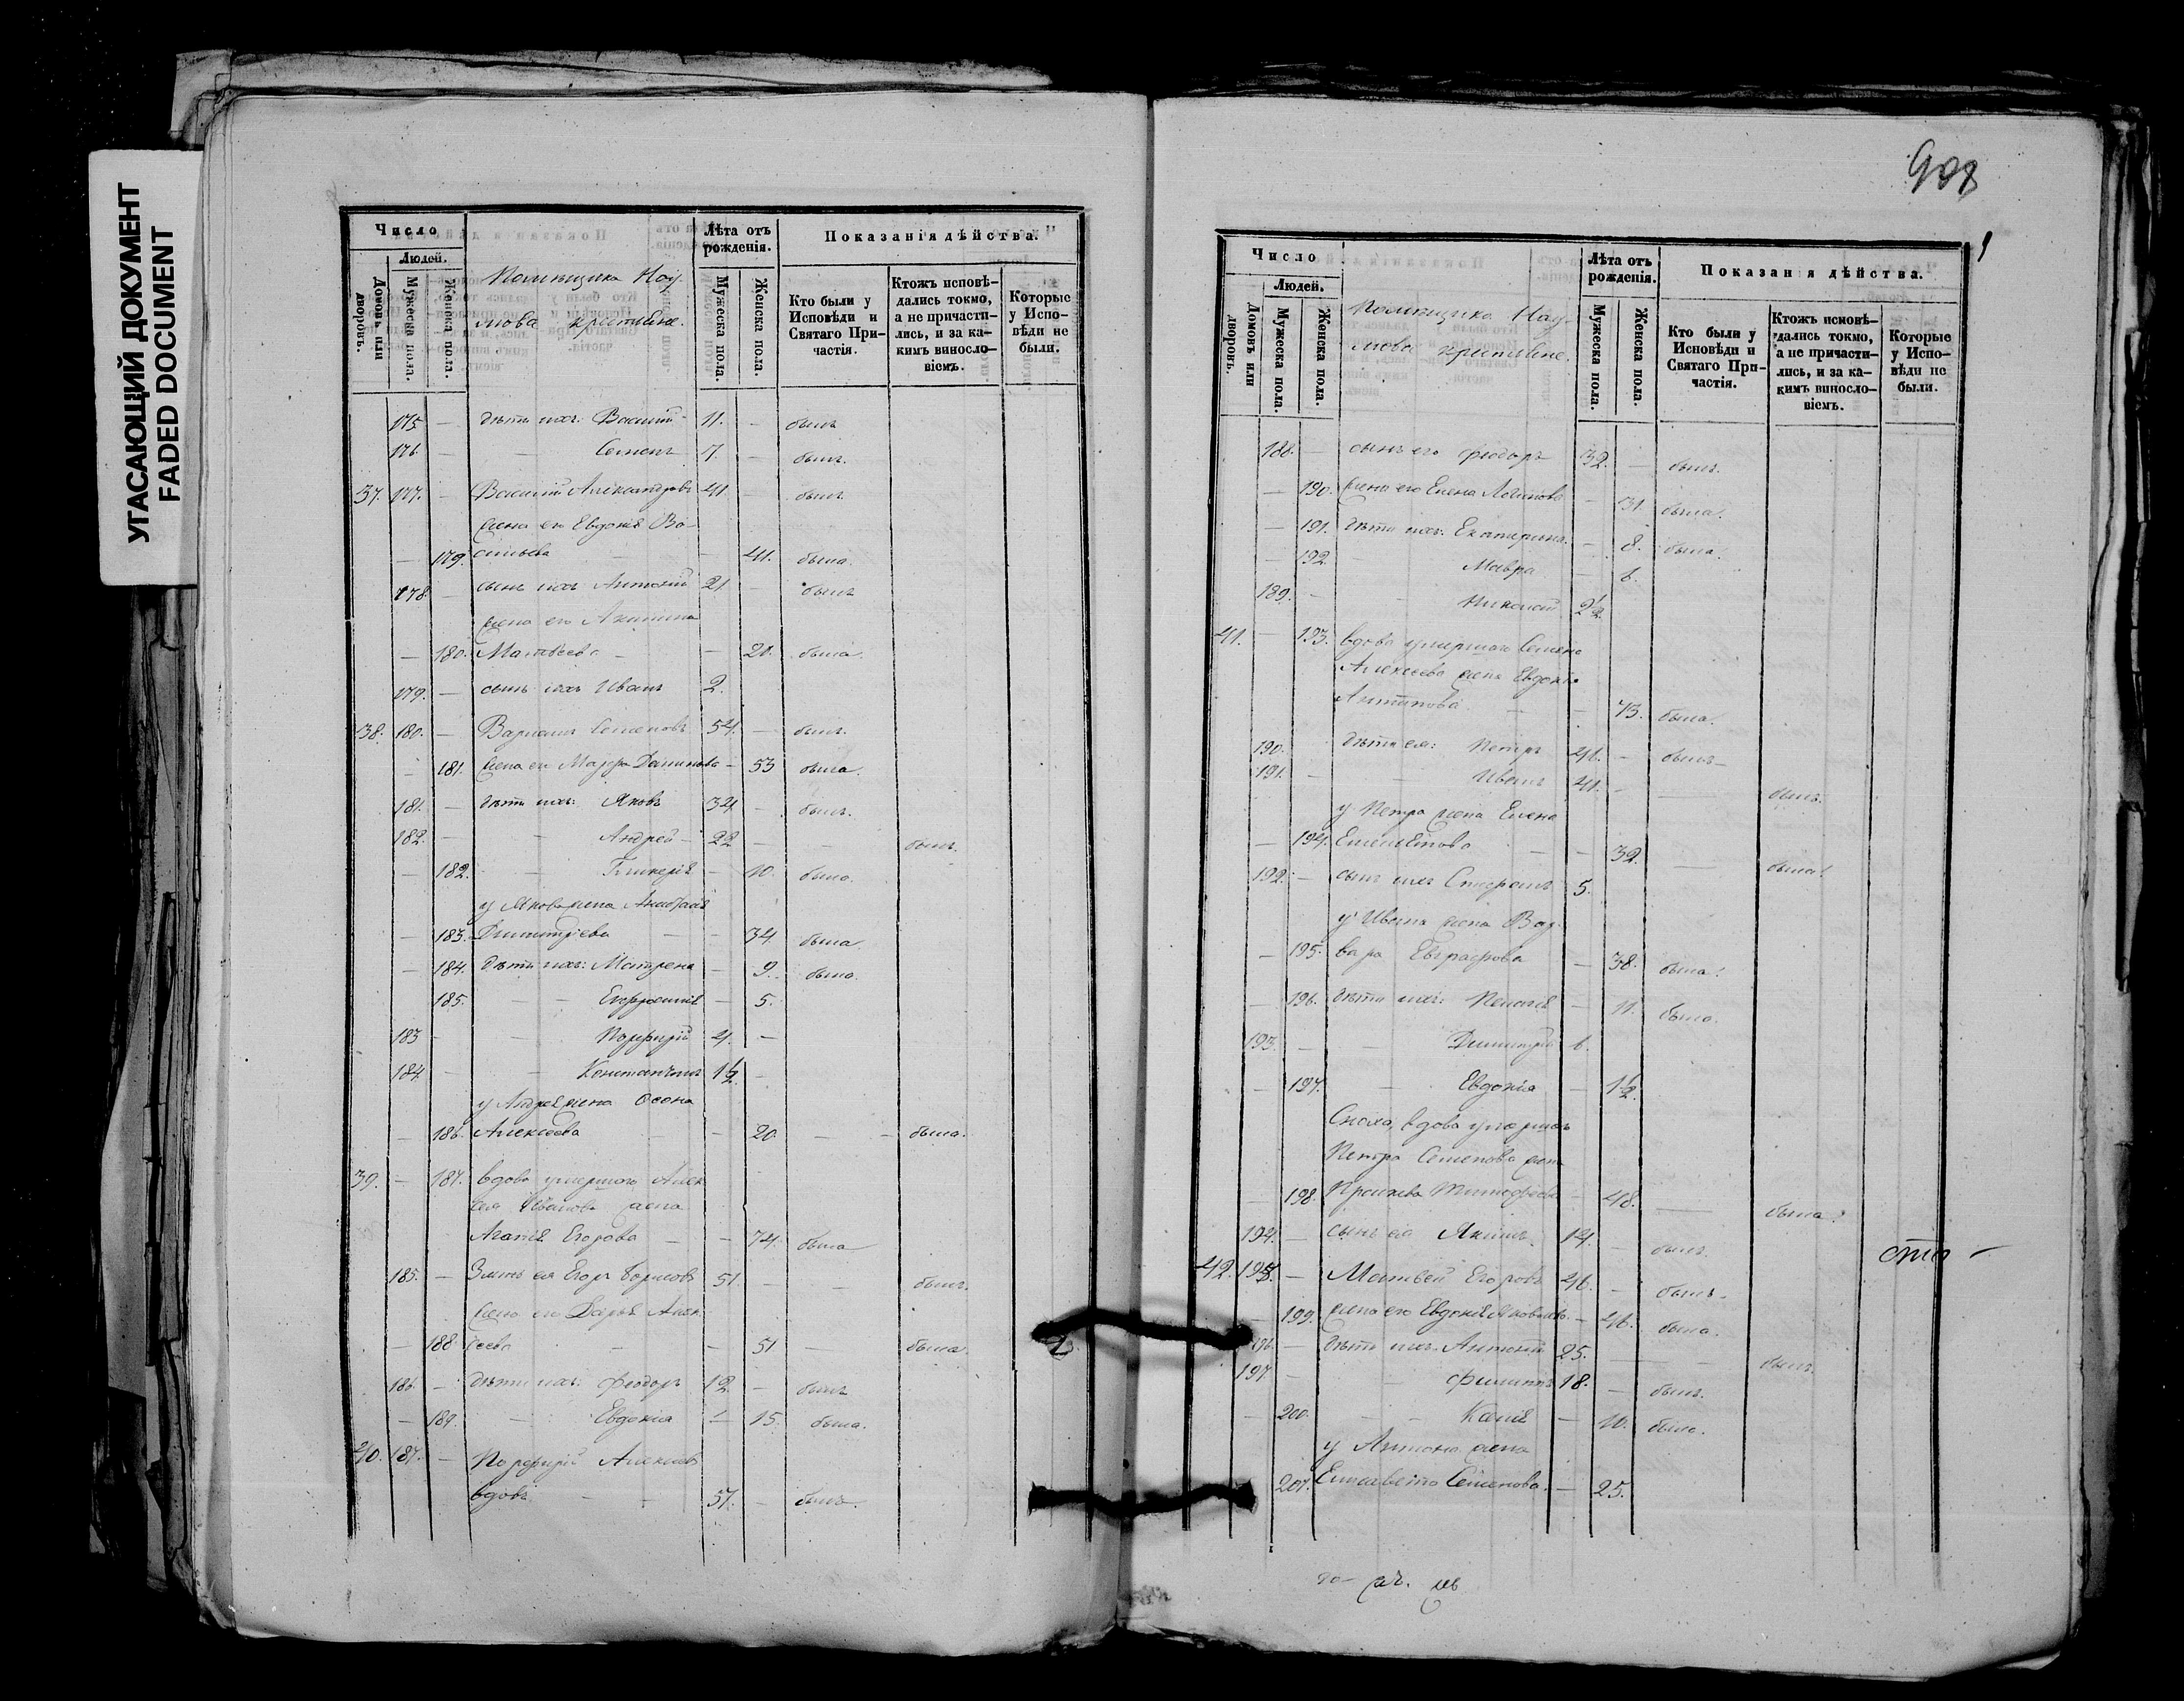 УГАСАЮЩИЙ ДОКУМЕНТ
FADED DOCUMENT
Число
Людей.
Домовъ или дворовъ.
Мужеска пола.
Женска пола.
Лѣта отъ рожденія.
Мужеска пола.
Женска пола.
Показанія дѣйства.
Кто были у Исповѣди и Святаго Причастія.
Ктожъ исповѣдались токмо, а не причастились, и за какимъ винословіемъ.
Которые у Исповѣди не были.
175. — дѣти ихъ: Василій 11. — былъ
176. — — Семенъ 7. — былъ.
37. 177. — Василій Александровъ 41 — былъ
жена его Евдокія Ва-
— 179. сильева — — 41. была.
178. — сынъ ихъ Антоній 21 — былъ
жена его Акилина
— 180. Матвѣева — — 20. была.
179. — сынъ ихъ Иванъ 2.
38. 180. — Семеновъ 54. — былъ.
— 181. жена ег Данилова — 53 была.
181. — дѣти ихъ: Яковъ 34 — былъ.
182. — — Андрей — 22 — — былъ.
— 182. — Гликерія — 10. была.
у Якова жена
— 183. Димитріева — — 34 была
— 184. дѣти ихъ: Матрена — 9. была.
185. — — — 5.
183 — — Порфирій 4. —
184 — — Константинъ 1½ —
у Андрея жена
— 186. Алексѣева — — 20. — — была.
39. — 187. вдова умершаго Алек-
сѣя Иванова жена
Агапія Егорова — — 74. была
185. — Зять ея Егоръ Борисовъ 51. — — былъ.
жена ег Дарья Алек-
— 188 сеева — — 51 — была.
186. — дѣти ихъ: Феодоръ 12. — былъ
— 189. — Евдокія — 15. была.
40. 187. — Порфирій Алексѣевъ
вдовъ — — 57. — былъ
908
Число
Людей.
Домовъ или дворовъ.
Мужеска пола.
Женска пола.
Лѣта отъ рожденія.
Мужеска пола.
Женска пола.
Показанія дѣйства.
Кто были у Исповѣди и Святаго Причастія.
Ктожъ исповѣдались токмо, а не причастились, и за какимъ винословіемъ.
Которые у Исповѣди не были.
188. — сынъ его Феодоръ 32. — былъ.
— 190. жена его Елена — 31. была.
— 191. дѣти ихъ: Екатерина — 8. была.
— 192. Мавра — 6.
189. — — Николай 2½
41. — 193. вдова умершаго Семена
Алексѣева жена Евдокія
Антипова — — 73. была.
190. дѣти ея: Петръ 46. — былъ —
191. — — Иванъ 41. — — былъ.
у Петра жена Елена
— 194. — — 32. — была.
192. — сынъ ихъ 5.
у Ивана жена Вар-
— 195. вара Евграфова — 38. была.
— 196. дѣти ихъ: Пелагія — 11. была.
193. — — Димитрій 6.
— 197. — Евдокія — 1½
Сноха, вдова умершаго
Петра Семенова жена
— 198. Тимофеева — 48. — была.
194. — сынъ ея 14. — былъ.
42. 195. — Матвей Егоровъ 46. — былъ.
— 199. жена его Евдокія Яковлева — 46. была.
196. — дѣти ихъ: Антоній 25. — — былъ.
197 — — Филиппъ 18. — былъ.
— 200. — — — 10. была.
у Антона жена
201. Елисавета Семенова. — 25.